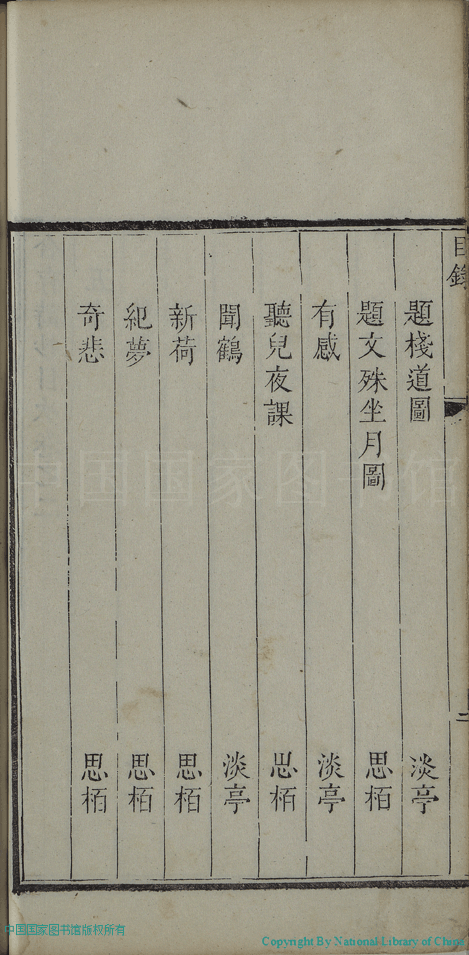 目錄
題棧道圖 淡亭
題文殊坐月圖 思栢
有感 淡亭
聽兒夜課 思栢
聞鶴 淡亭
新荷 思栢
紀夢 思栢
奇悲 思栢
二
中国国家图书馆
中国国家图书馆版权所有
Copyright By National Library of China